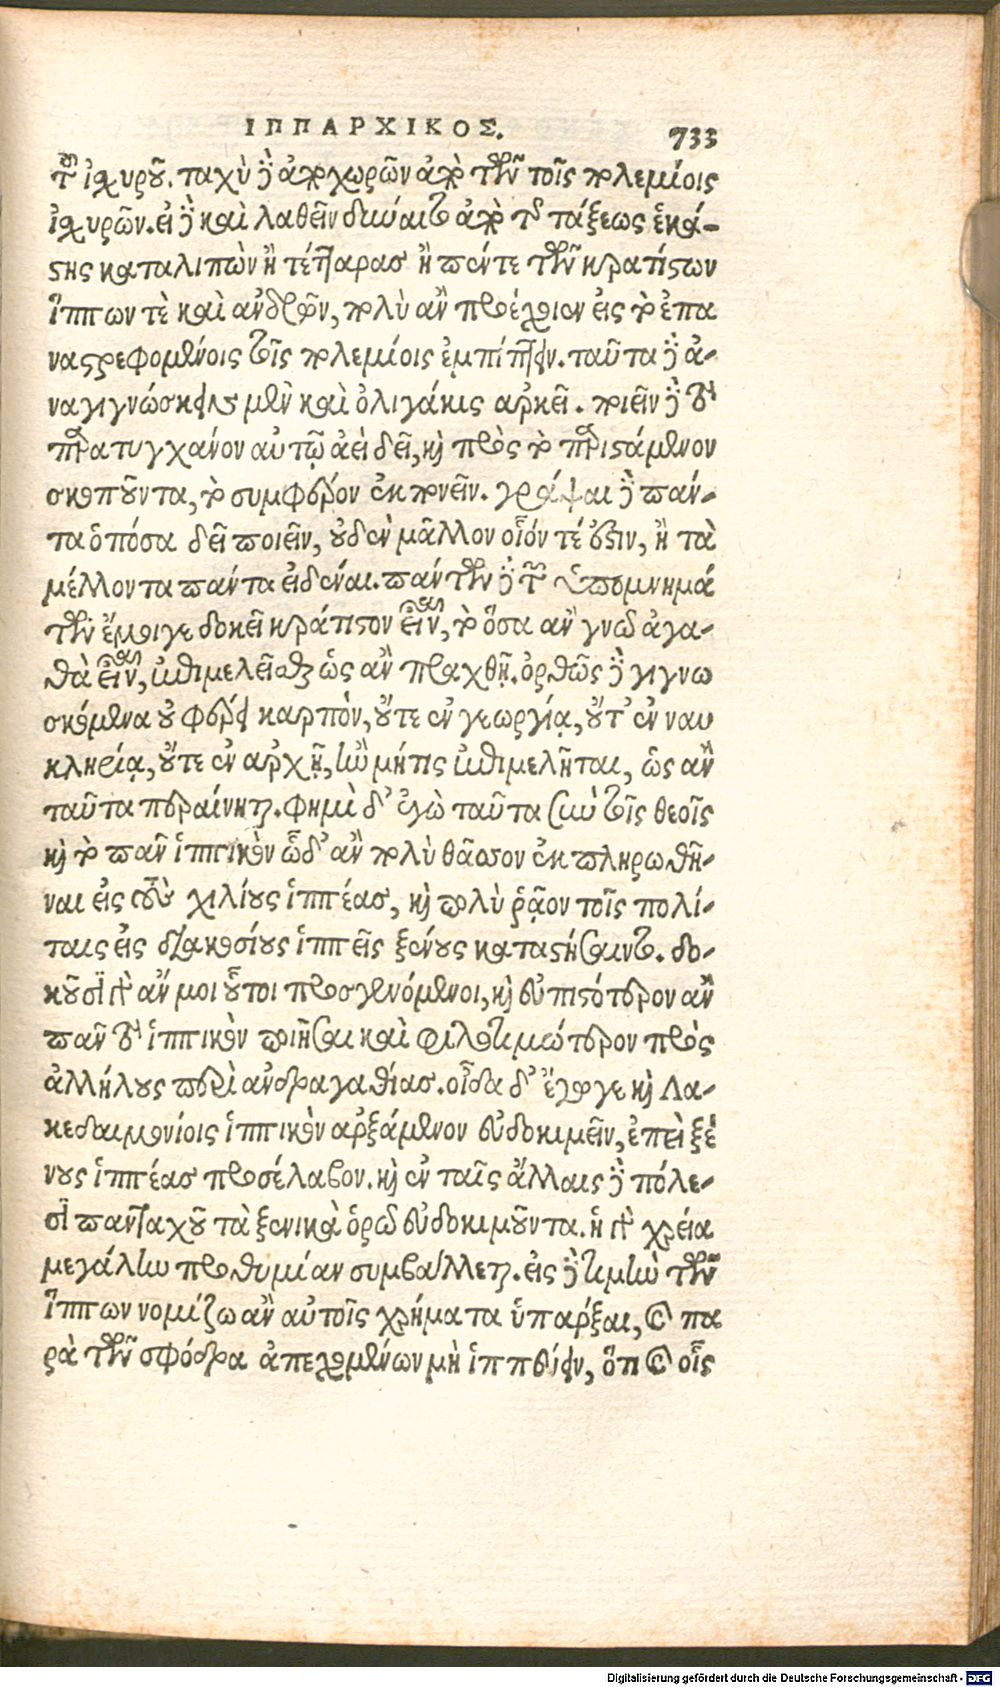 ΙΠΠΑΡΧΙΚΟΣ. 733
τοῦ ἰσχυροῦ. ταχὺ δὲ ἀποχωρῶν ἀπὸ τῶν τοῖς πολεμίοις
ἰσχυρῶν. εἰ δὲ καὶ λαθεῖν δύναιτο ἀπὸ τῆς τάξεως ἑκά-
στης καταλιπὼν ἢ τέτταρας ἢ πέντε τῶν κρατίστων
ἵππων τὲ καὶ ἀνδρῶν, πολὺ ἂν προέχοιεν εἰς τὸ ἐπα
ναστρεφομένοις τοῖς πολεμίοις ἐμπίπτειν. ταῦτα δὲ ἀ-
ναγιγνώσκειν μὲν καὶ ὀλιγάκις ἀρκεῖ. ποιεῖν δὲ τὸ
παρατυγχάνον αὐτῷ ἀεὶ δεῖ, καὶ πρὸς τὸ παριστάμενον
σκοποῦντα, τὸ συμφέρον ἐκπονεῖν. γράψαι δὲ πάν-
τα ὁπόσα δεῖ ποιεῖν, οὐδὲν μᾶλλον οἷόν τέ ἐστιν, ἢ τὰ
μέλλοντα πάντα εἰδέναι. πάντων δὲ τῶν ὑπομνημά
των ἔμοιγε δοκεῖ κράτιστον εἶναι, τὸ ὅσα ἂν γνῷ ἀγα-
θὰ εἶναι, ἐπιμελεῖσθαι ὡς ἂν πραχθῇ. ὀρθῶς δὲ γιγνω
σκόμενα οὐ φέρει καρπὸν, οὔτε ἐν γεωργίᾳ, οὔτ' ἐν ναυ
κληρίᾳ, οὔτε ἐν ἀρχῇ, ἢν μήτις ἐπιμελῆται, ὡς ἂν
ταῦτα περαίνηται. φημὶ δ' ἐγὼ ταῦτα σὺν τοῖς θεοῖς
καὶ τὸ πᾶν ἱππικὸν ὧδ' ἂν πολὺ θᾶσσον ἐκπληρωθῆ-
ναι εἰς τοὺς χιλίους ἱππέας, καὶ πολὺ ῥᾷον τοῖς πολί-
ταις εἰς διακοσίους ἱππεῖς ξένους καταστήσαιντο. δο-
κοῦσι γὰρ ἄν μοι οὗτοι προσγενόμενοι, καὶ εὐπιστότερον ἂν
πᾶν τὸ ἱππικὸν ποιῆσαι καὶ φιλοτιμότερον πρὸς
ἀλλήλους περὶ ἀνδραγαθίας. οἶδα δ' ἔγωγε καὶ Λα-
κεδαιμονίοις ἱππικὸν ἀρξάμενον εὐδοκιμεῖν, ἐπεὶ ξέ
νους ἱππέας προσέλαβον. καὶ ἐν ταῖς ἄλλαις δὲ πόλε-
σι πανταχοῦ τὰ ξενικὰ ὁρῶ εὐδοκιμοῦντα. ἡ γὰρ χρεία
μεγάλην προθυμίαν συμβάλλεται. εἰς δὲ τιμὴν τῶν
ἵππων νομίζω ἂν αὐτοῖς χρήματα ὑπάρξαι, καὶ πα
ρὰ τῶν σφόδρα ἀπεχομένων μὴ ἱππεύειν, ὅτι καὶ οἷς
Digitalisierung gefördert durch die Deutsche Forschungsgemeinschaft - DFG